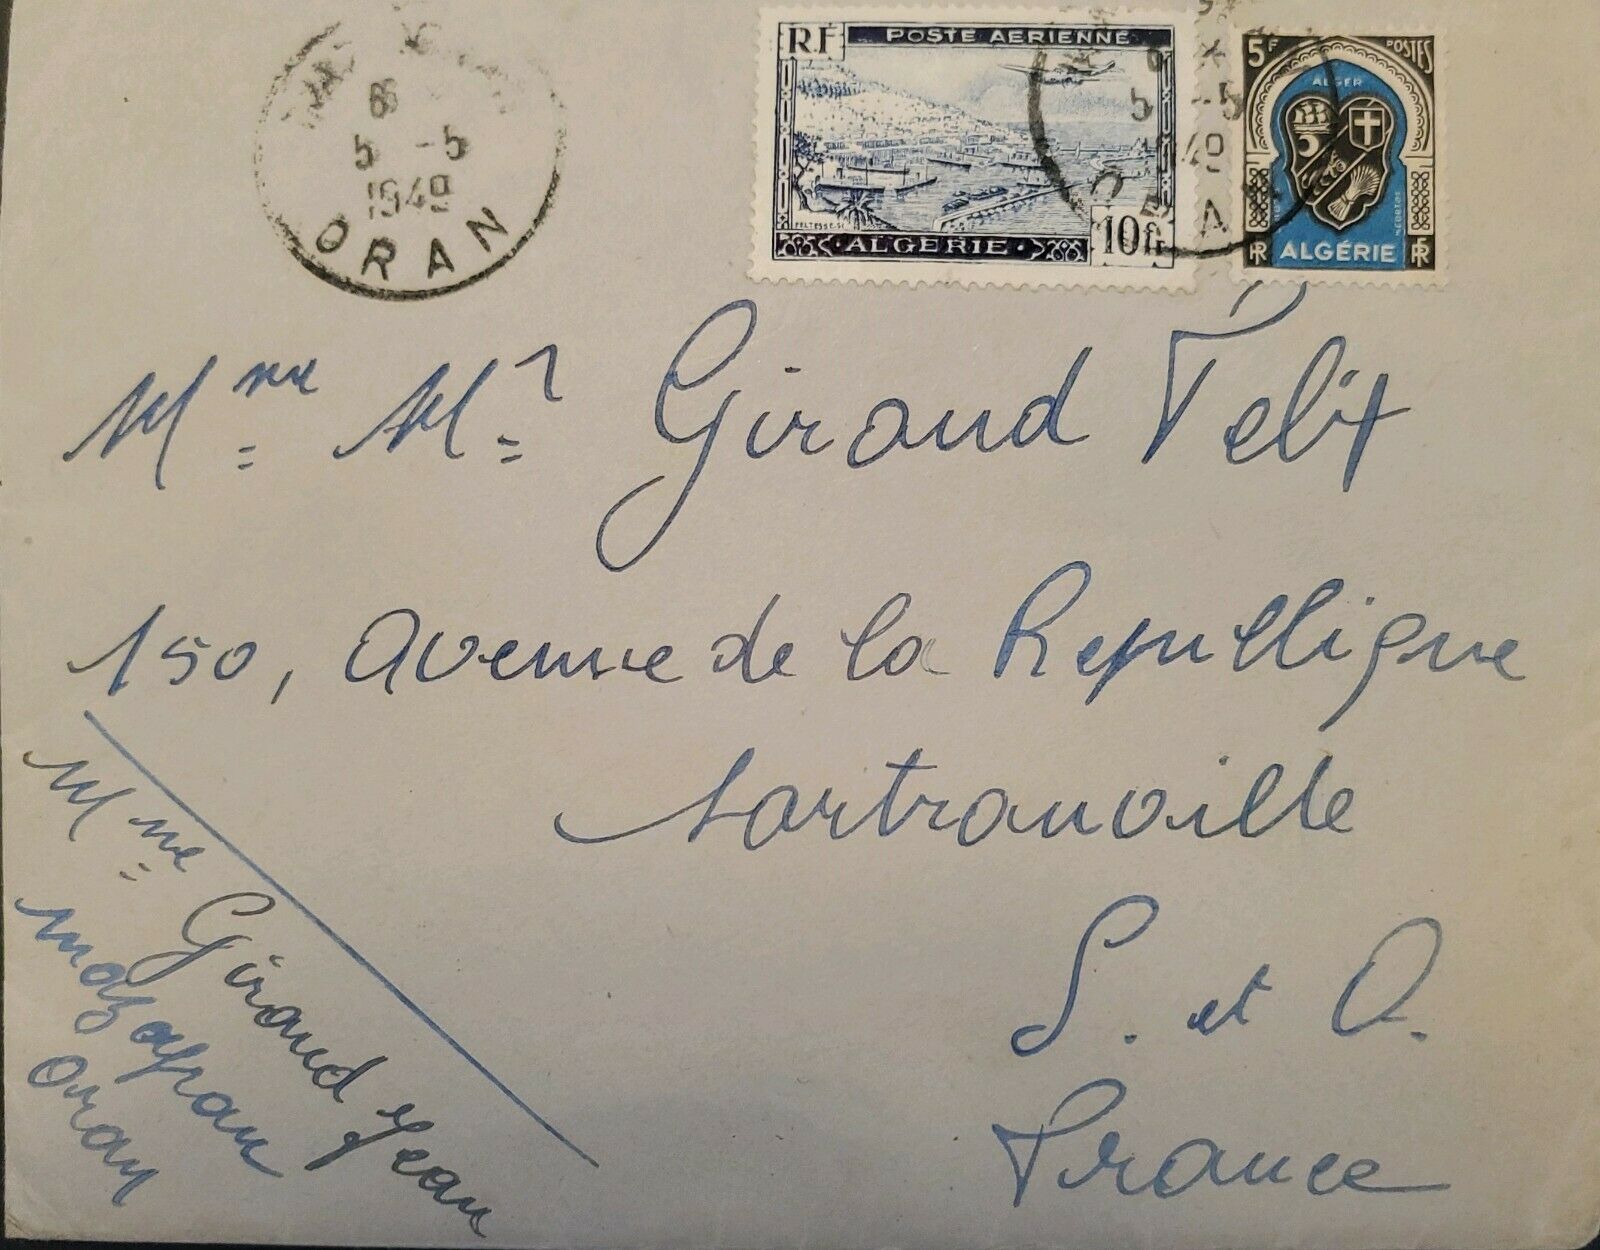 5 -5
1949
ORAN
RF POSTE AERIENNE
ALGERIE 10f
5 -5
5F POSTES
ALGER
RF ALGÉRIE RF
Mme Mr Giraud Félix
150, Avenue de la Republique
Sartrouville
S. et O.
France
Mme Giraud Jean
Mazagran
Oran